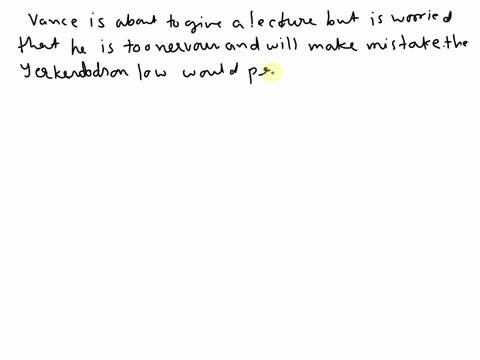 Vance is about to give a lecture but is worried
that he is too nervous and will make mistake.the
Yerkendodson low would pe.